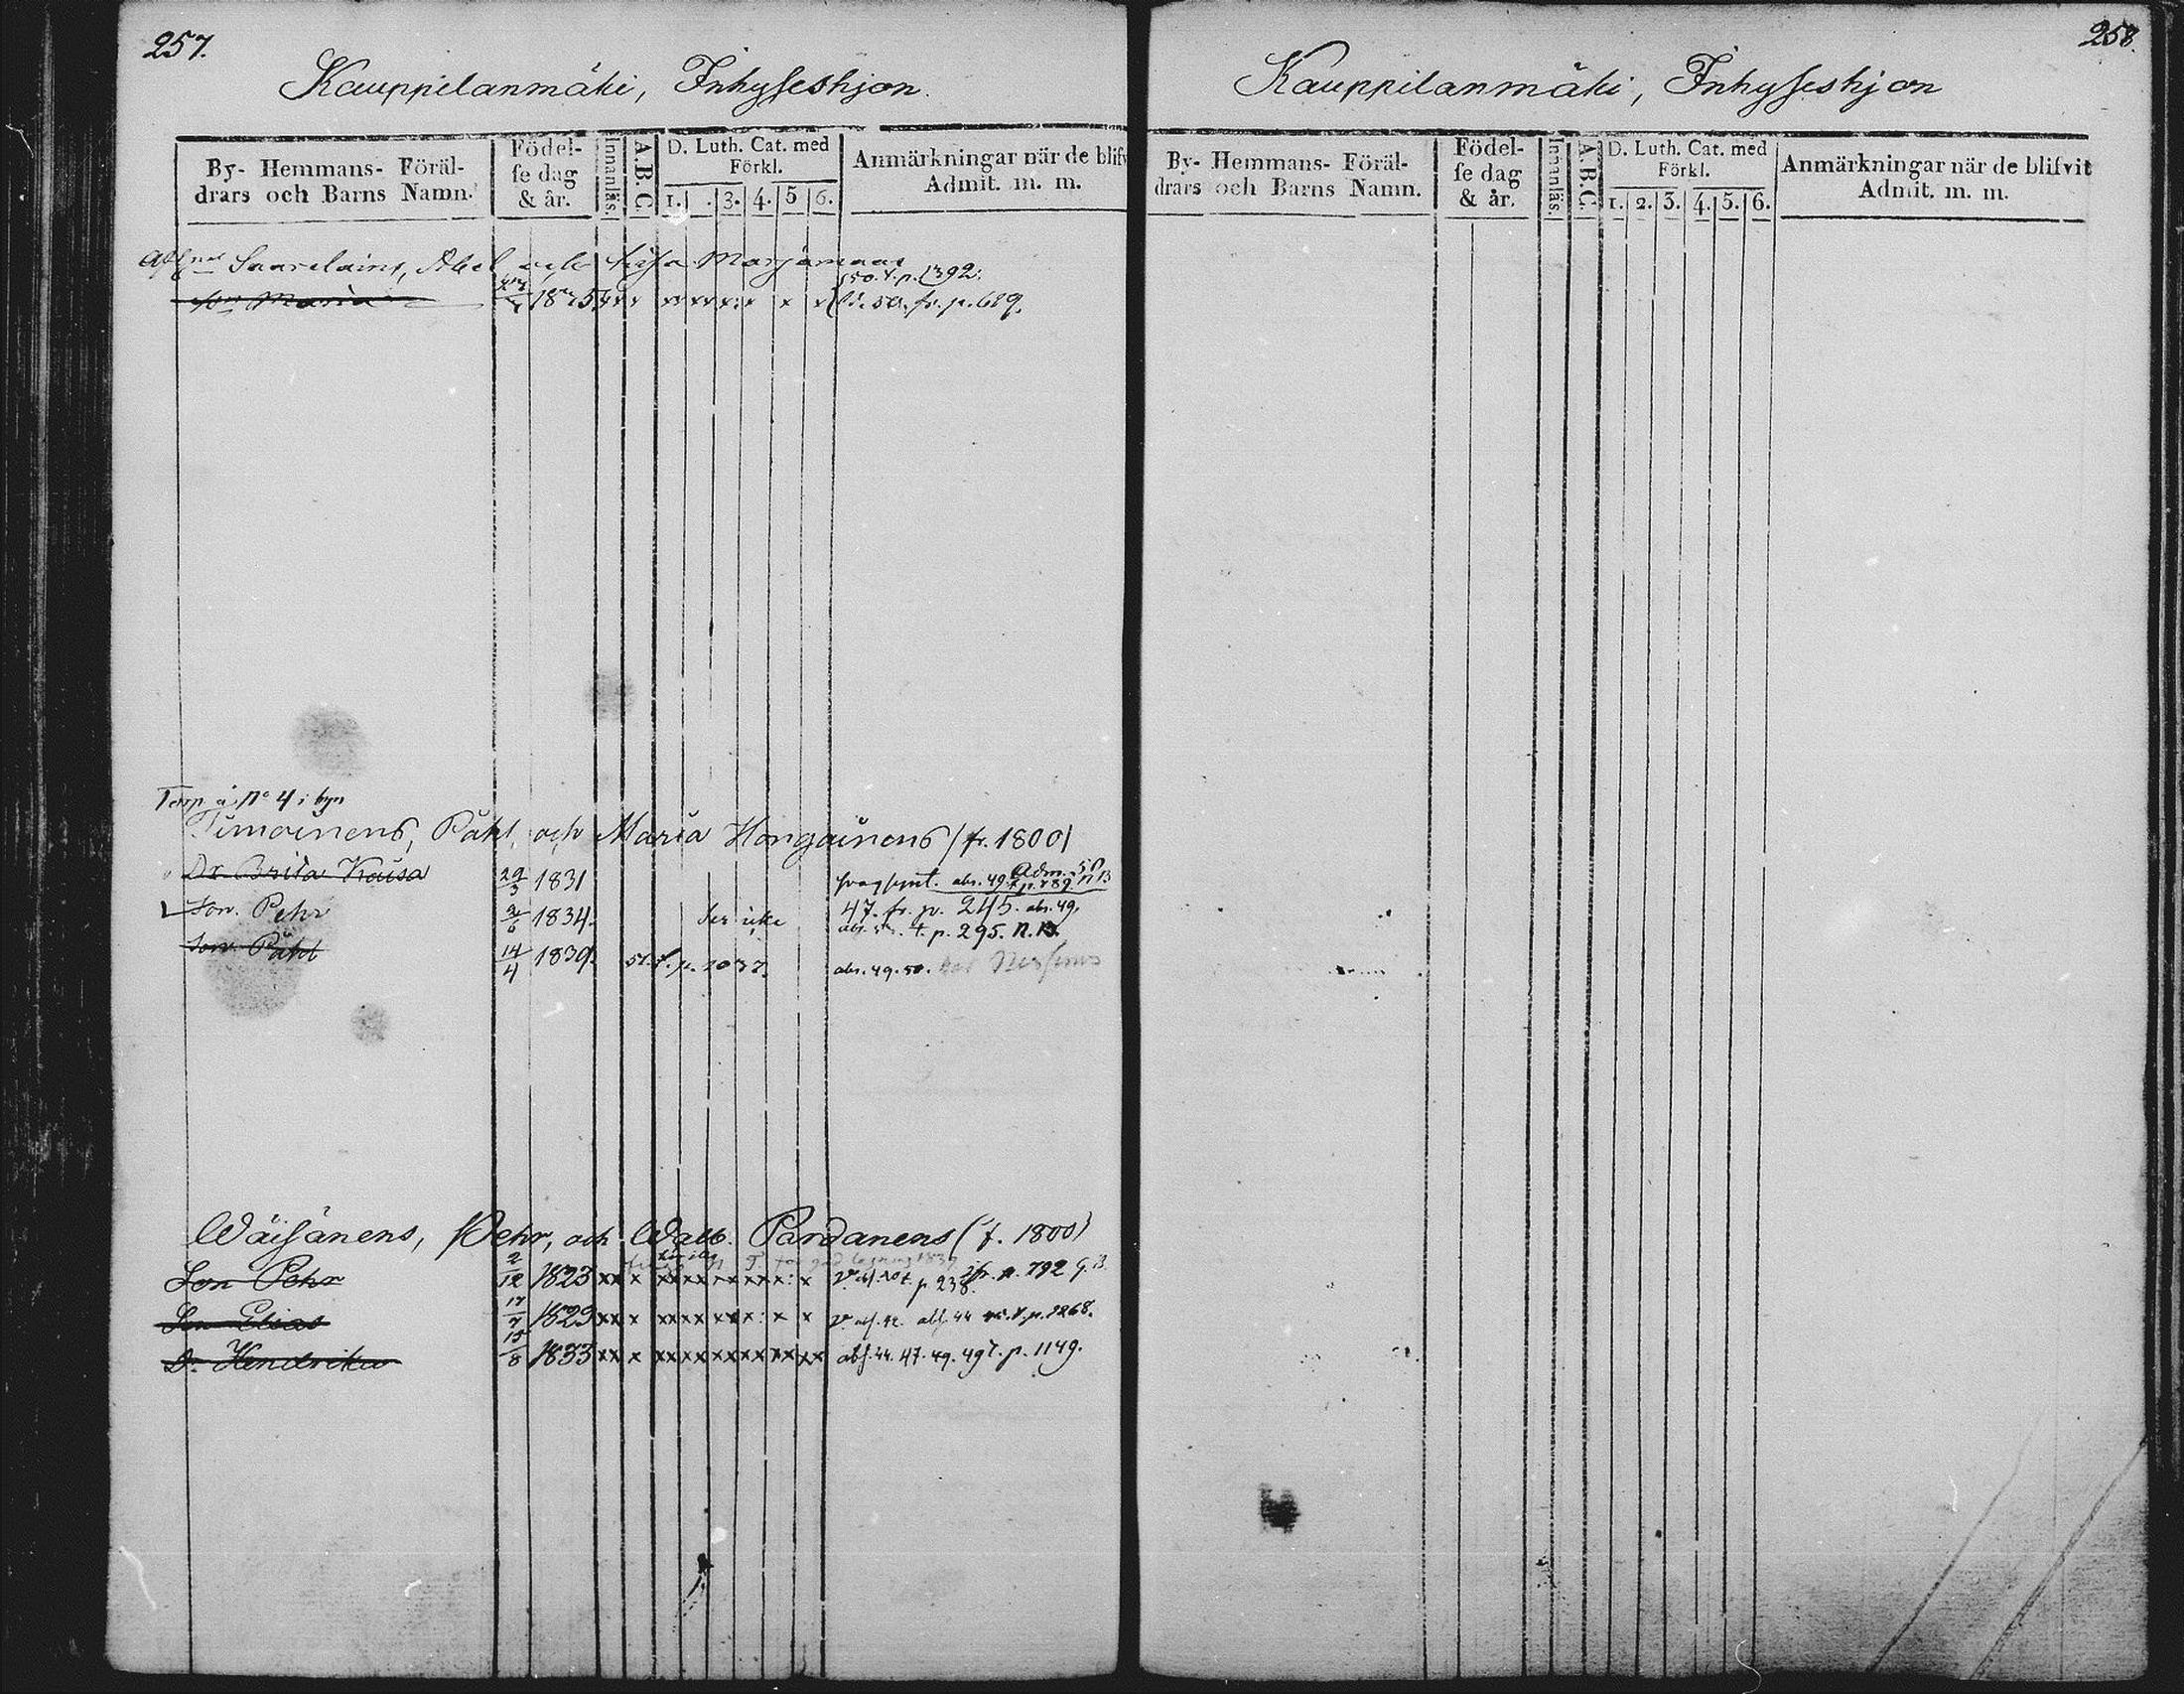 257.
Kauppilanmäki, Inhyseshjon.
By- Hemmans- Föräl-
drars och Barns Namn.
Födel-
se dag
& år.
Innanläs.
A.B.C.
D. Luth. Cat. med
Förkl.
1. . 3. 4. 5 6.
Anmärkningar när de blifv
Admit. m. m.
Saarelains, Abel och
50. t. p. 1392.
Maria 18 5 xx x xx xx x: x x x fr. p. 689.
Torp å No 4 i byn
Timoinens, Påhl och Maria Hongoinens (fr. 1800)
Dr. Brita Kaisa 29/3 1831 abs. 49. Adm. 50
Son. Pehr 1834. ser icke 47. fr. p. 245. abs. 49.
t. p. 295. N.B.
Son Påhl 14/4 1839. 51. t. p. 1037. abs. 49. 50.
Wäisänens, Pehr, och Walb. Pardanens (f. 1800)
Son Pehr 2/12 1823 xx x p. 238. fr. p. 792
Son Elias 17/7 1829 xx x abs. 44 t. p. 1268.
Dr. Hendrika 15/8 1833 xx x abs. 44. 47. 49. 49 t. p. 1149.
258.
Kauppilanmäki, Inhyseshjon
By- Hemmans- Föräl-
drars och Barns Namn.
Födel-
se dag
& år.
Innanläs.
A.B.C.
D. Luth. Cat. med
Förkl.
1. 2. 3. 4. 5. 6.
Anmärkningar när de blifvit
Admit. m. m.